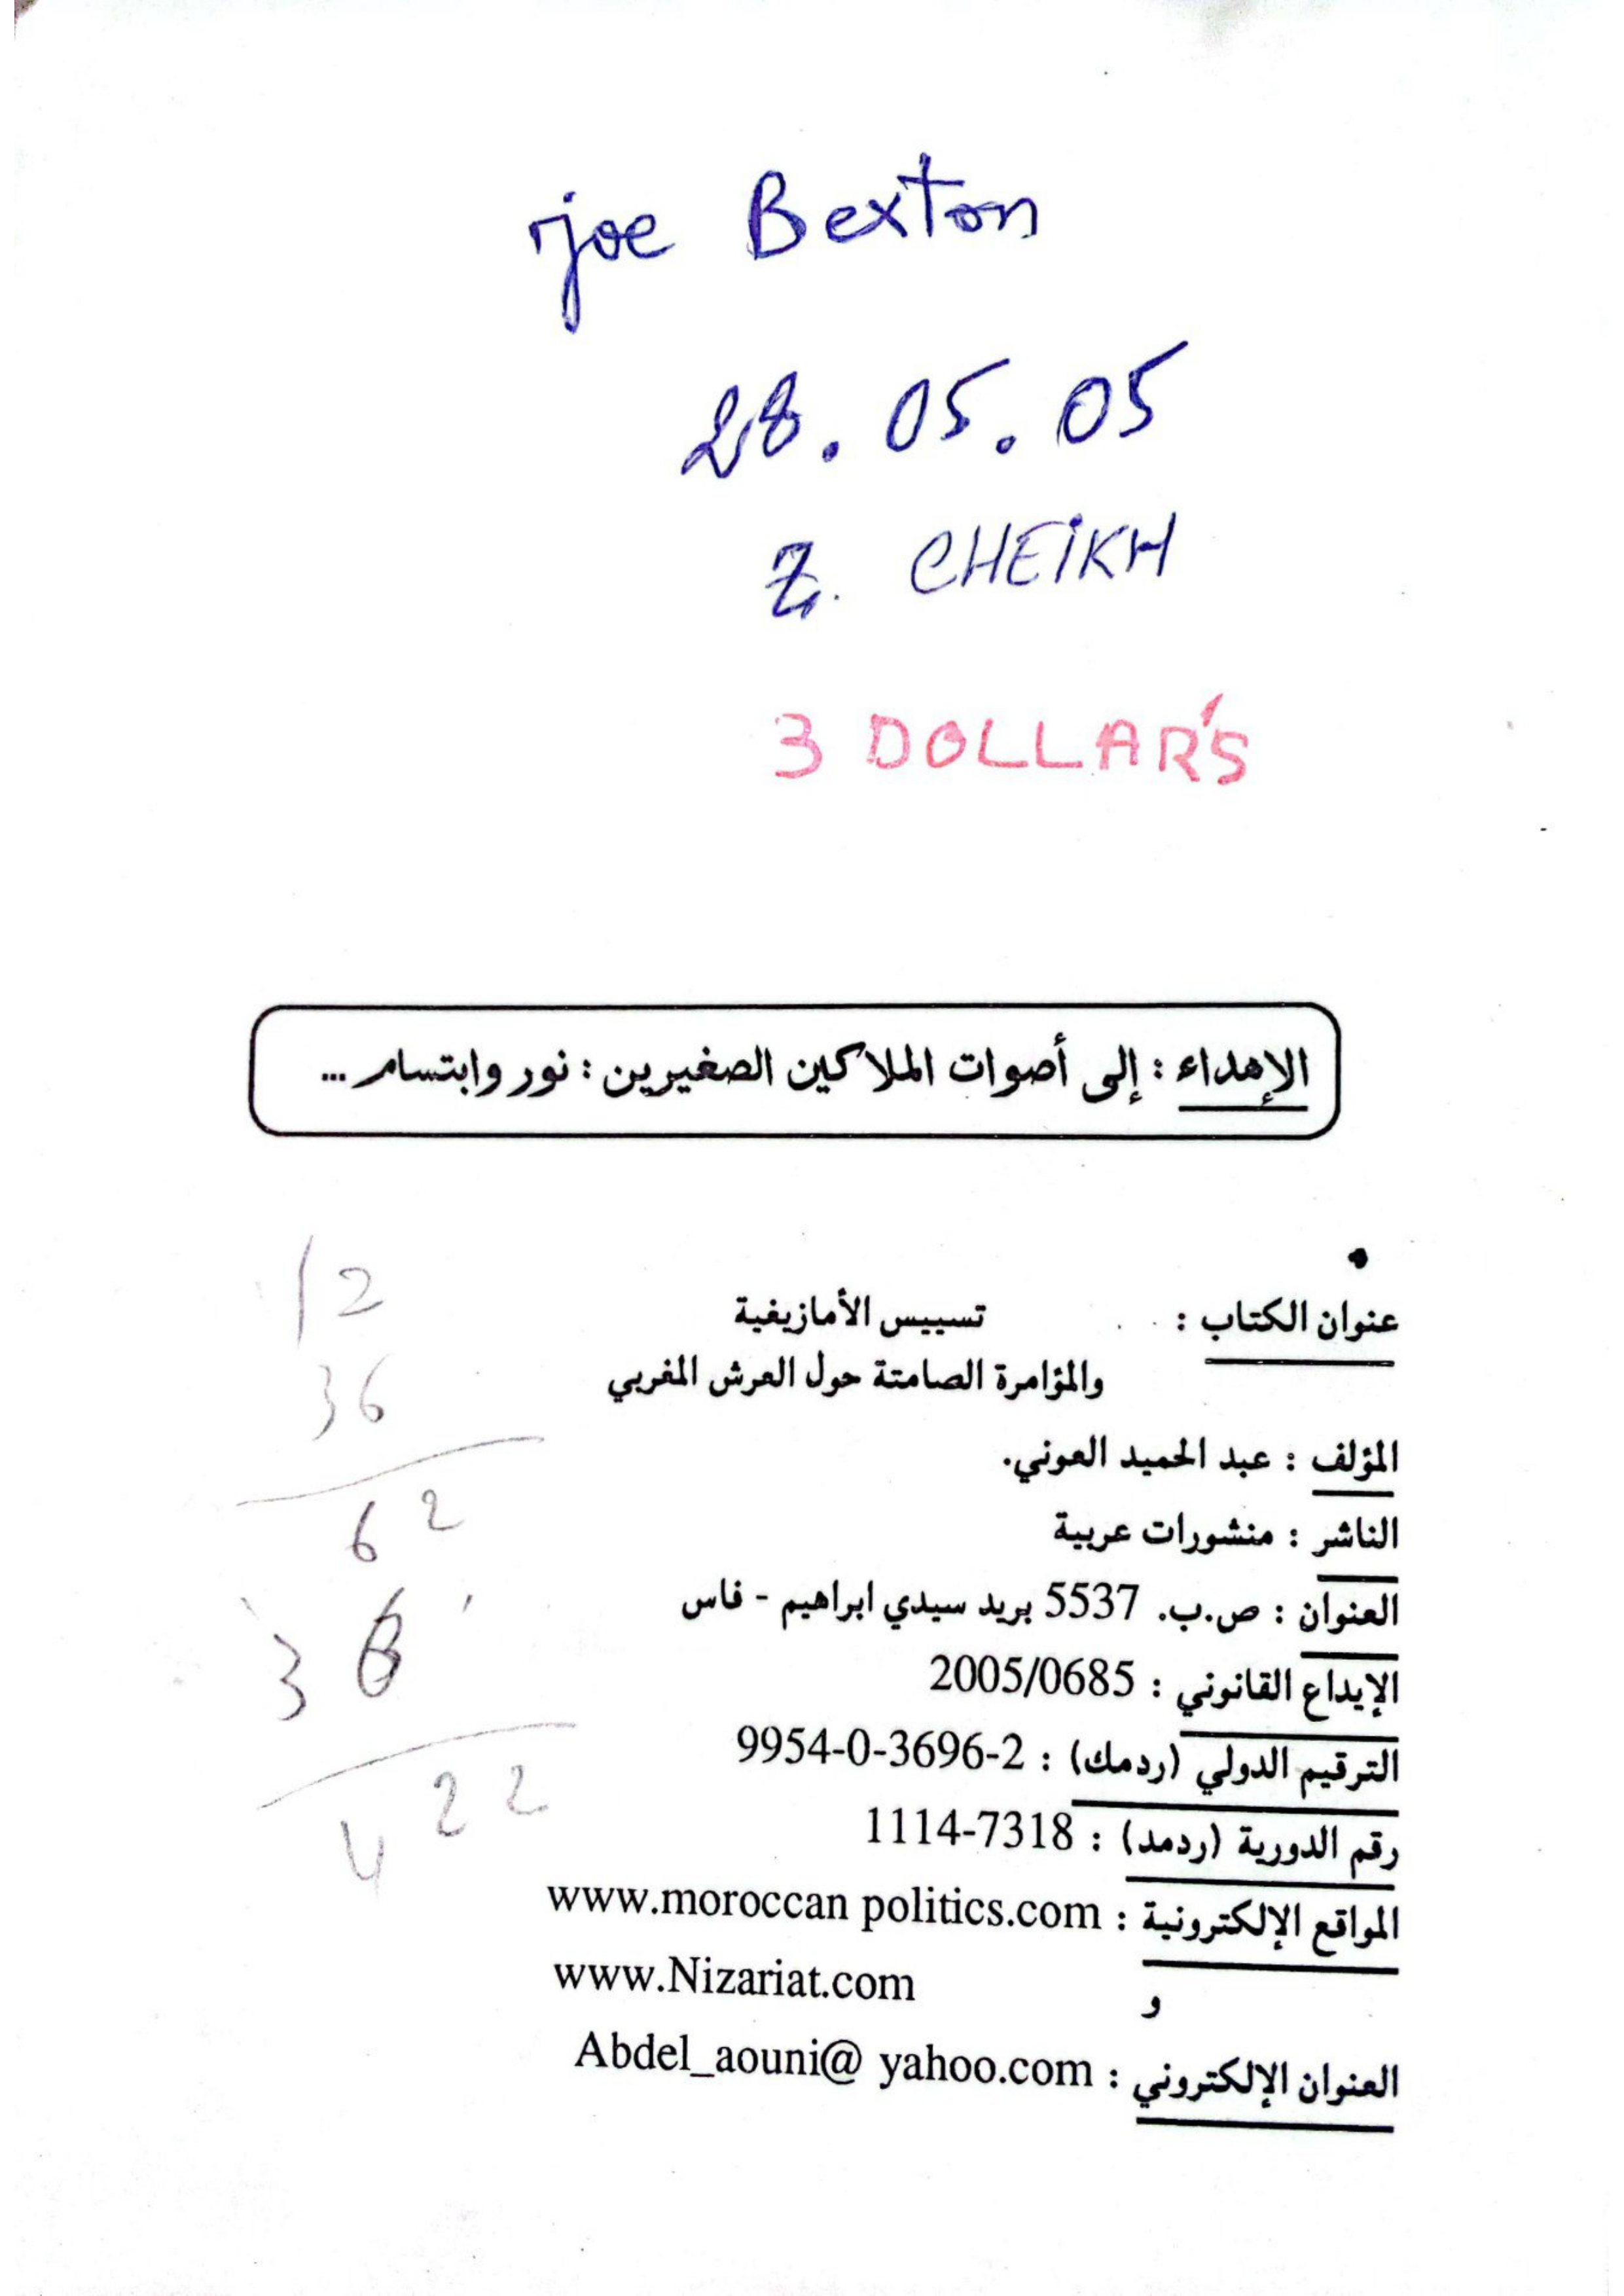 joe Bexton
28.05.05
Z. CHEIKH
3 DOLLAR'S
الإهداء : إلى أصوات الملاكين الصغيرين : نور وابتسام ...
عنوان الكتاب : تسييس الأمازيغية
والمؤامرة الصامتة حول العرش المغربي
المؤلف : عبد الحميد العوني.
الناشر : منشورات عربية
العنوان : ص.ب. 5537 بريد سيدي ابراهيم - فاس
الإيداع القانوني : 2005/0685
الترقيم الدولي (ردمك) : 9954-0-3696-2
رقم الدورية (ردمد) : 1114-7318
المواقع الإلكترونية : www.moroccan politics.com
و www.Nizariat.com
العنوان الإلكتروني : Abdel_aouni@ yahoo.com
12
36
62
36
422